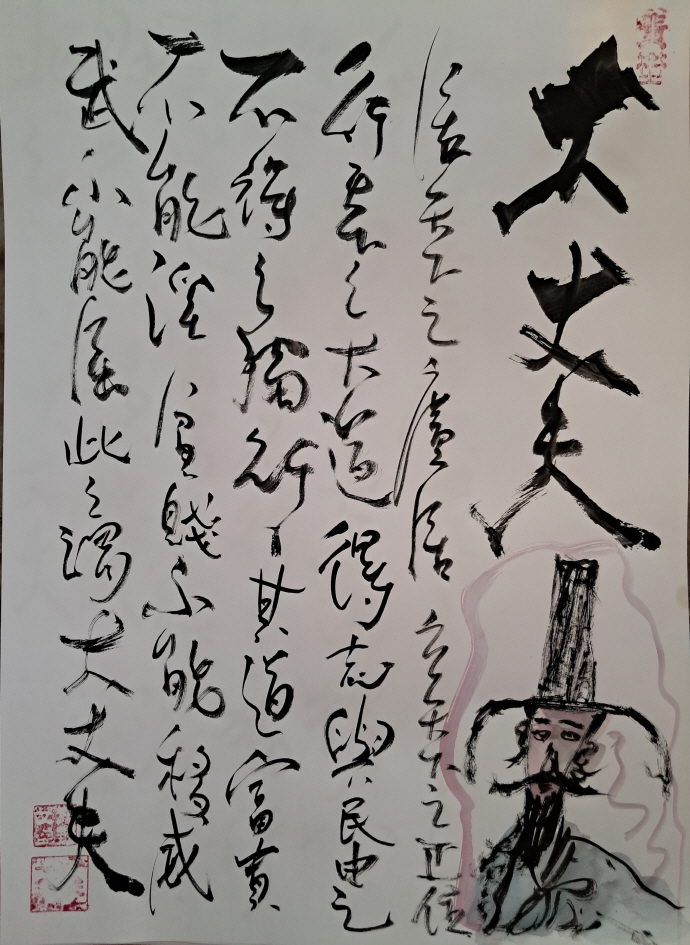 大丈夫
居天下之廣居立天下之正位
行天下之大道得志與民由之
不得之獨行其道富貴
不能淫貧賤不能移威
武不能屈此之謂大丈夫